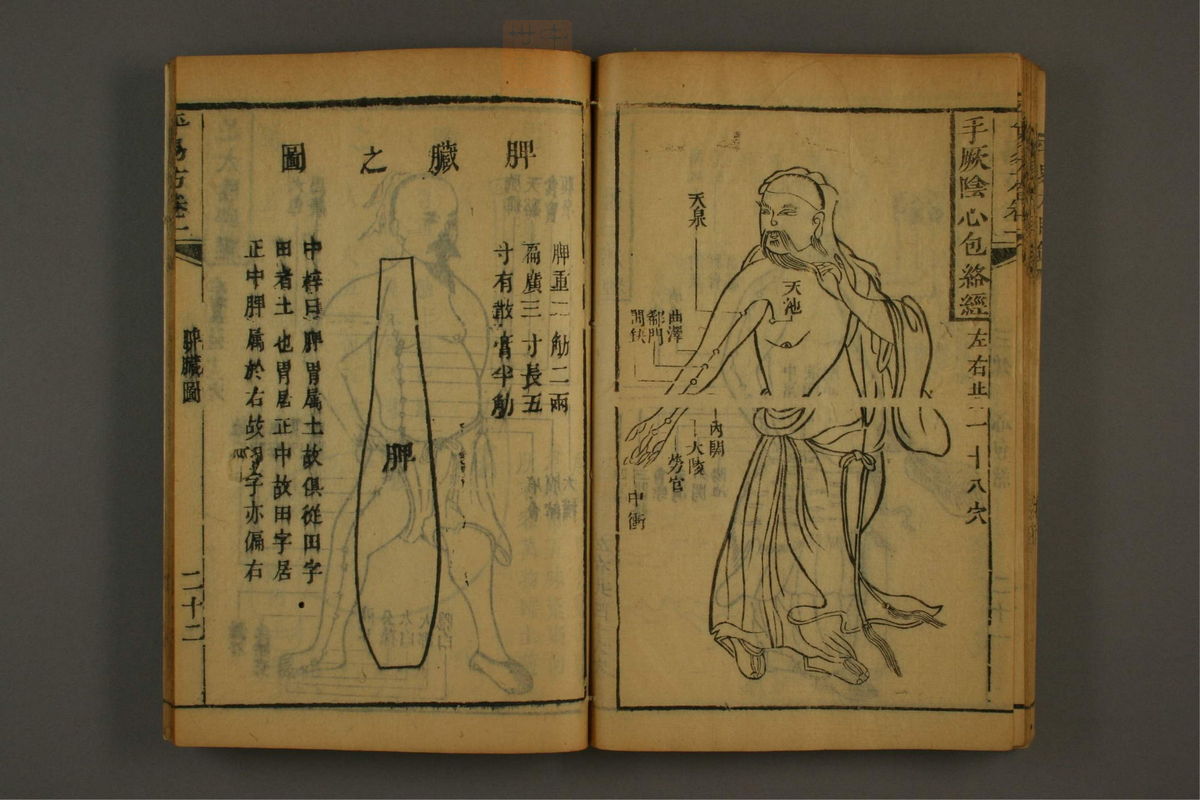 手厥陰心包絡經
左右共一十八穴
天泉
天池
曲澤
郄門
間使
內關
大陵
勞宮
中衝
脾臟之圖
脾重二觔二兩
扁廣三寸長五
寸有散膏半觔
脾
中梓曰脾胃属土故俱從田字
田者土也胃居正中故田字居
正中脾属於右故字亦偏右
脾臟圖
二十二